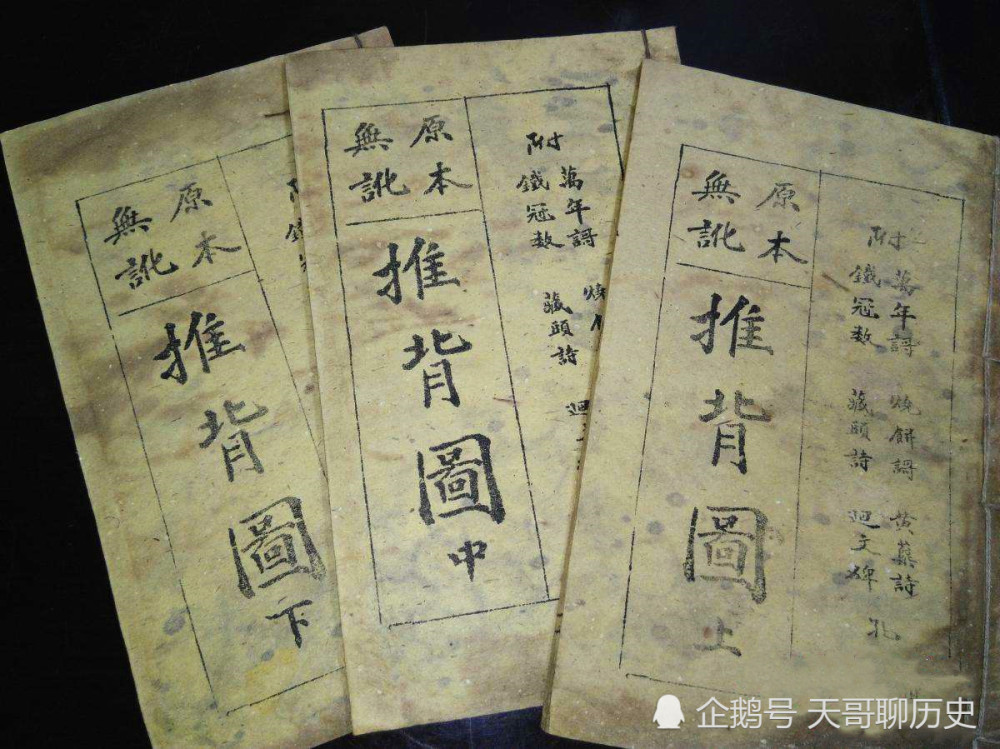 附
萬年謌 燒餅謌 黃蘗詩
鐵冠数 藏頭詩 迴文碑 孔
原本
無訛
推背圖 上
附
萬年謌 燒
鐵冠数 藏頭詩 迴
原本
無訛
推背圖 中
原本
無訛
推背圖 下
企鹅号 天哥聊历史